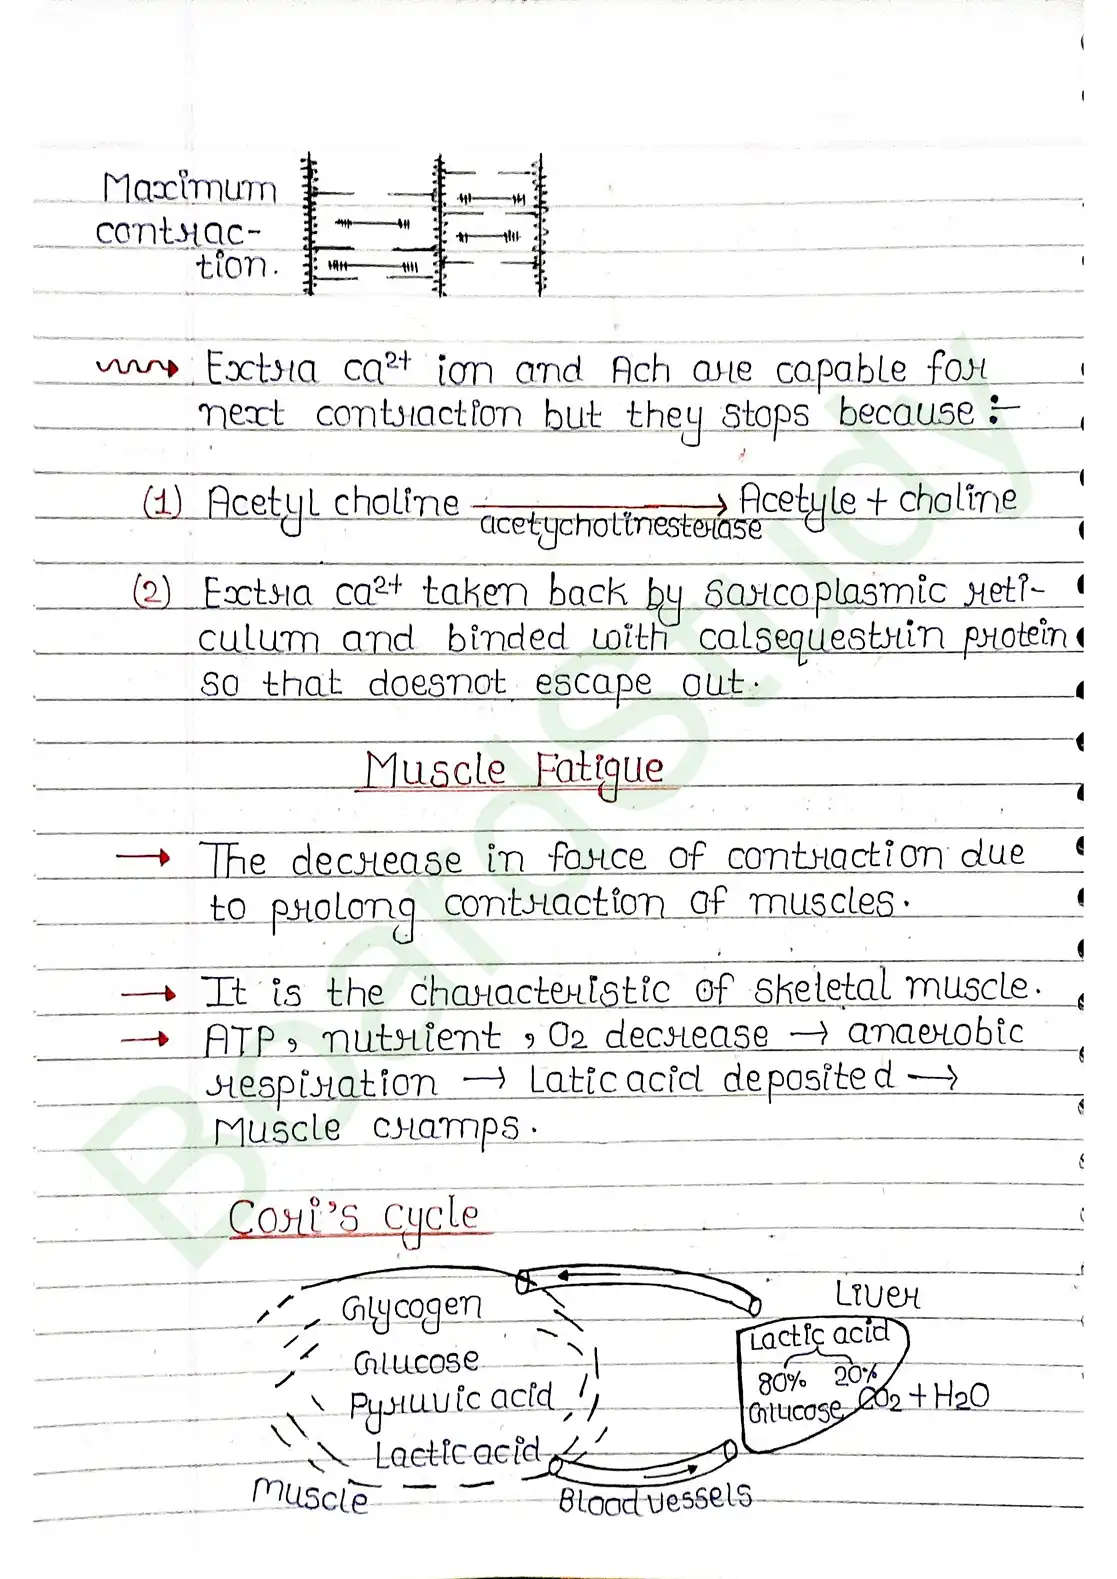 Maximum
contrac-
tion.
Extra ca²⁺ ion and Ach are capable for
next contraction but they stops because :-
(1) Acetyl choline → Acetyle + choline
acetycholinesterase
(2) Extra ca²⁺ taken back by sarcoplasmic reti-
culum and binded with calsequestrin protein
so that doesnot escape out.
Muscle Fatigue
→ The decrease in force of contraction due
to prolong contraction of muscles.
→ It is the characteristic of skeletal muscle.
→ ATP, nutrient, O2 decrease → anaerobic
respiration → Latic acid deposited →
Muscle cramps.
Cori's cycle
Glycogen
Glucose
Pyruvic acid
Lactic acid
Muscle
Blood vessels
Liver
Lactic acid
80% 20%
Glucose CO2 + H2O
BoardStudy